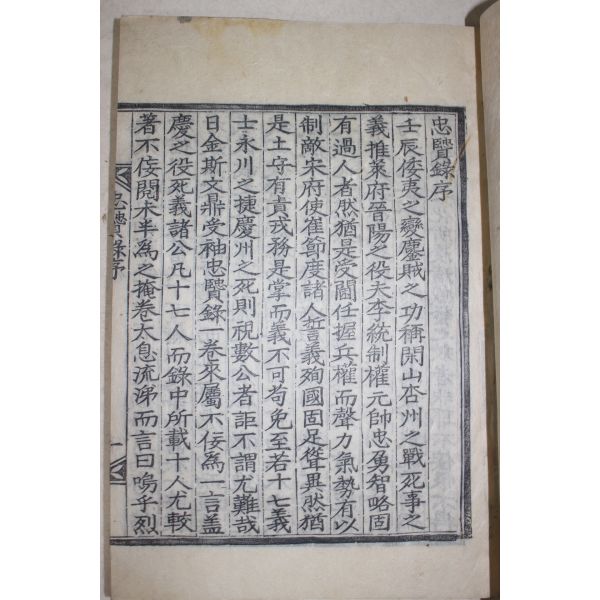 忠賢錄序
壬辰倭夷之變鏖賊之功稱閑山杏州之戰死事之
義推萊府晉陽之役夫李統制權元帥忠勇智略固
有過人者然猶是受閫任握兵權而聲力氣勢有以
制敵宋府使崔節度諸人誓義殉國固足聳異然猶
是土守有責戎務是掌而義不可苟免至若十七義
士永川之捷慶州之死則視數公者詎不謂尤難哉
日金斯文鼎受袖忠賢錄一卷來屬不佞為一言盖
慶之役死義諸公凡十七人而錄中所載十人尤較
著不佞閱未半為之掩卷太息流涕而言曰嗚乎烈
忠賢錄序
一